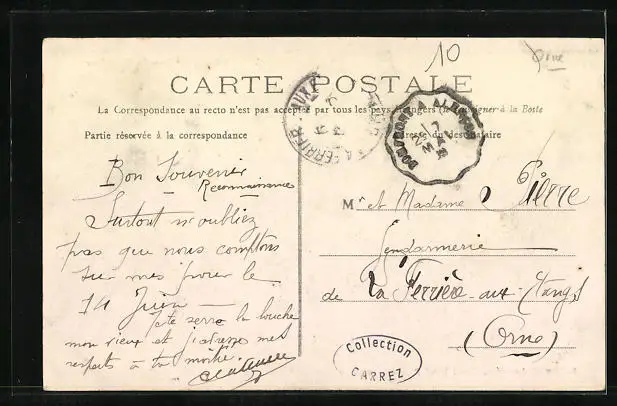 10
Orne
CARTE POSTALE
La Correspondance au recto n'est pas acceptée par tous les pays étrangers (Se renseigner à la Poste
Partie réservée à la correspondance
Adresse du destinataire
DOMFRONT A ALENÇON
17
MAI
LA FERRIÈRE AUX
Bon Souvenir
Reconnaissance
Surtout n'oubliez
pas que nous comptons
sur mes pour le
14 Juin
serre la
mon vieux et mes
respects à ta
Mr et Madame Pierre
Gendarmerie
de La Ferrière-aux-Etangs
(Orne)
Collection
CARREZ